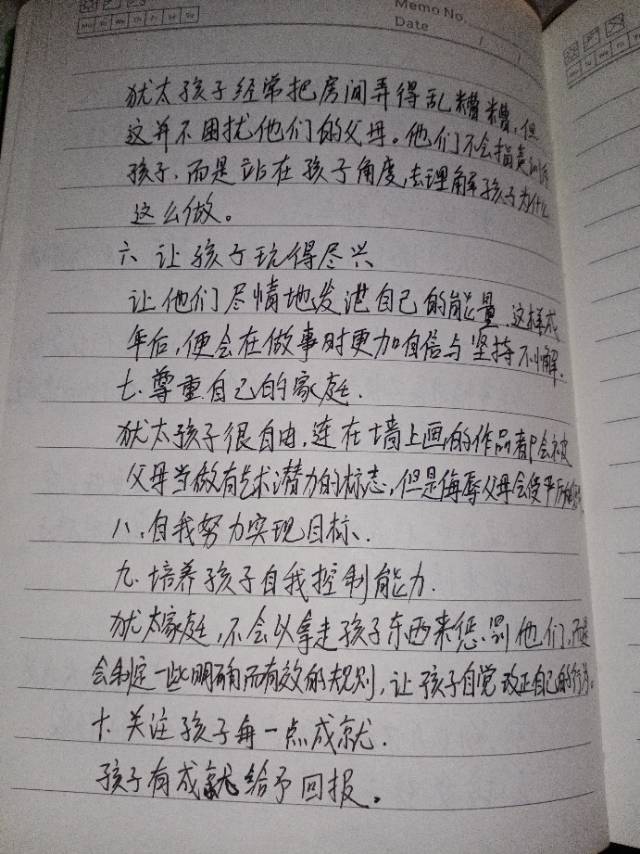 Memo No.
Date / /
Mo Tu We Th Fr Sa Su
犹太孩子经常把房间弄得乱糟糟,但
这并不困扰他们的父母。他们不会指责训斥
孩子,而是站在孩子角度,去理解孩子为什么
这么做。
六、让孩子玩得尽兴
让他们尽情地发泄自己的能量,这样成
年后,便会在做事时更加自信与坚持不懈。
七、尊重自己的家庭.
犹太孩子很自由,连在墙上画的作品都会被
父母当做有艺术潜力的标志,但是侮辱父母会受严厉
八、自我努力实现目标、
九、培养孩子自我控制能力.
犹太家庭,不会以拿走孩子东西来惩罚他们,而是
会制定一些明确而有效的规则,让孩子自觉改正自己的行为。
十、关注孩子每一点成就.
孩子有成就给予回报。